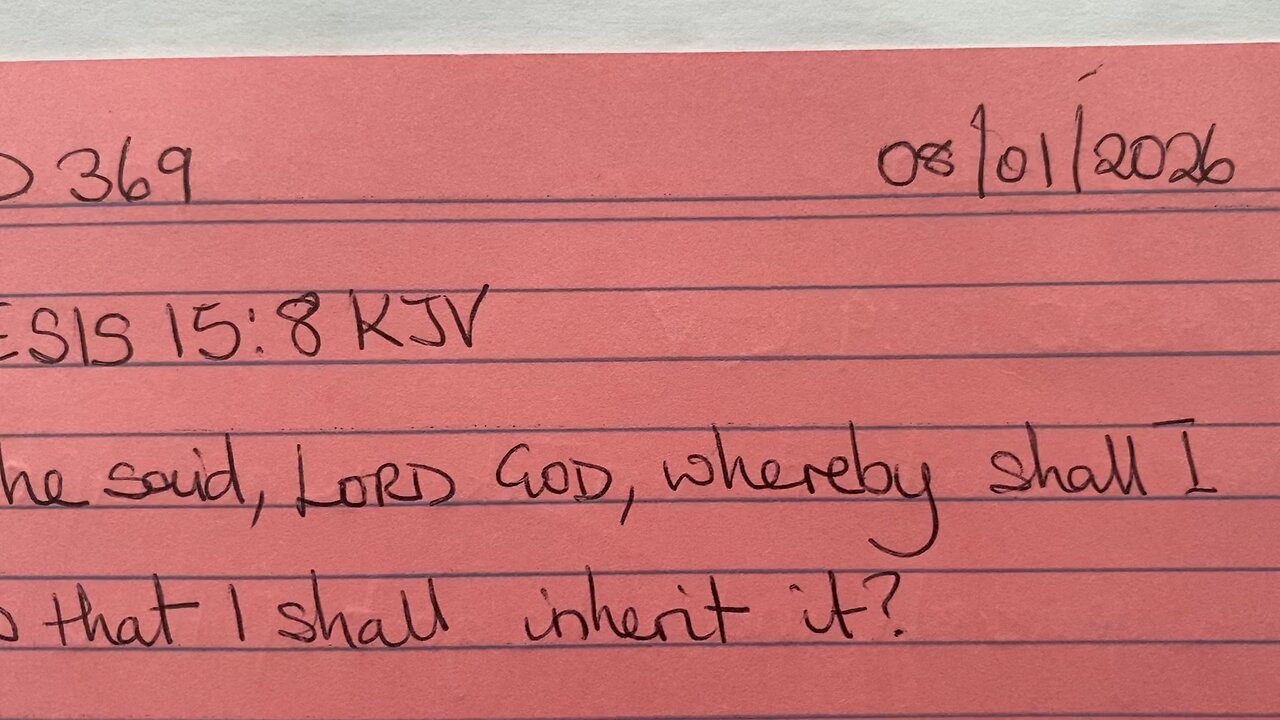 369 08/01/2026
ESIS 15:8 KJV
he said, LORD GOD, whereby shall I
that I shall inherit it?